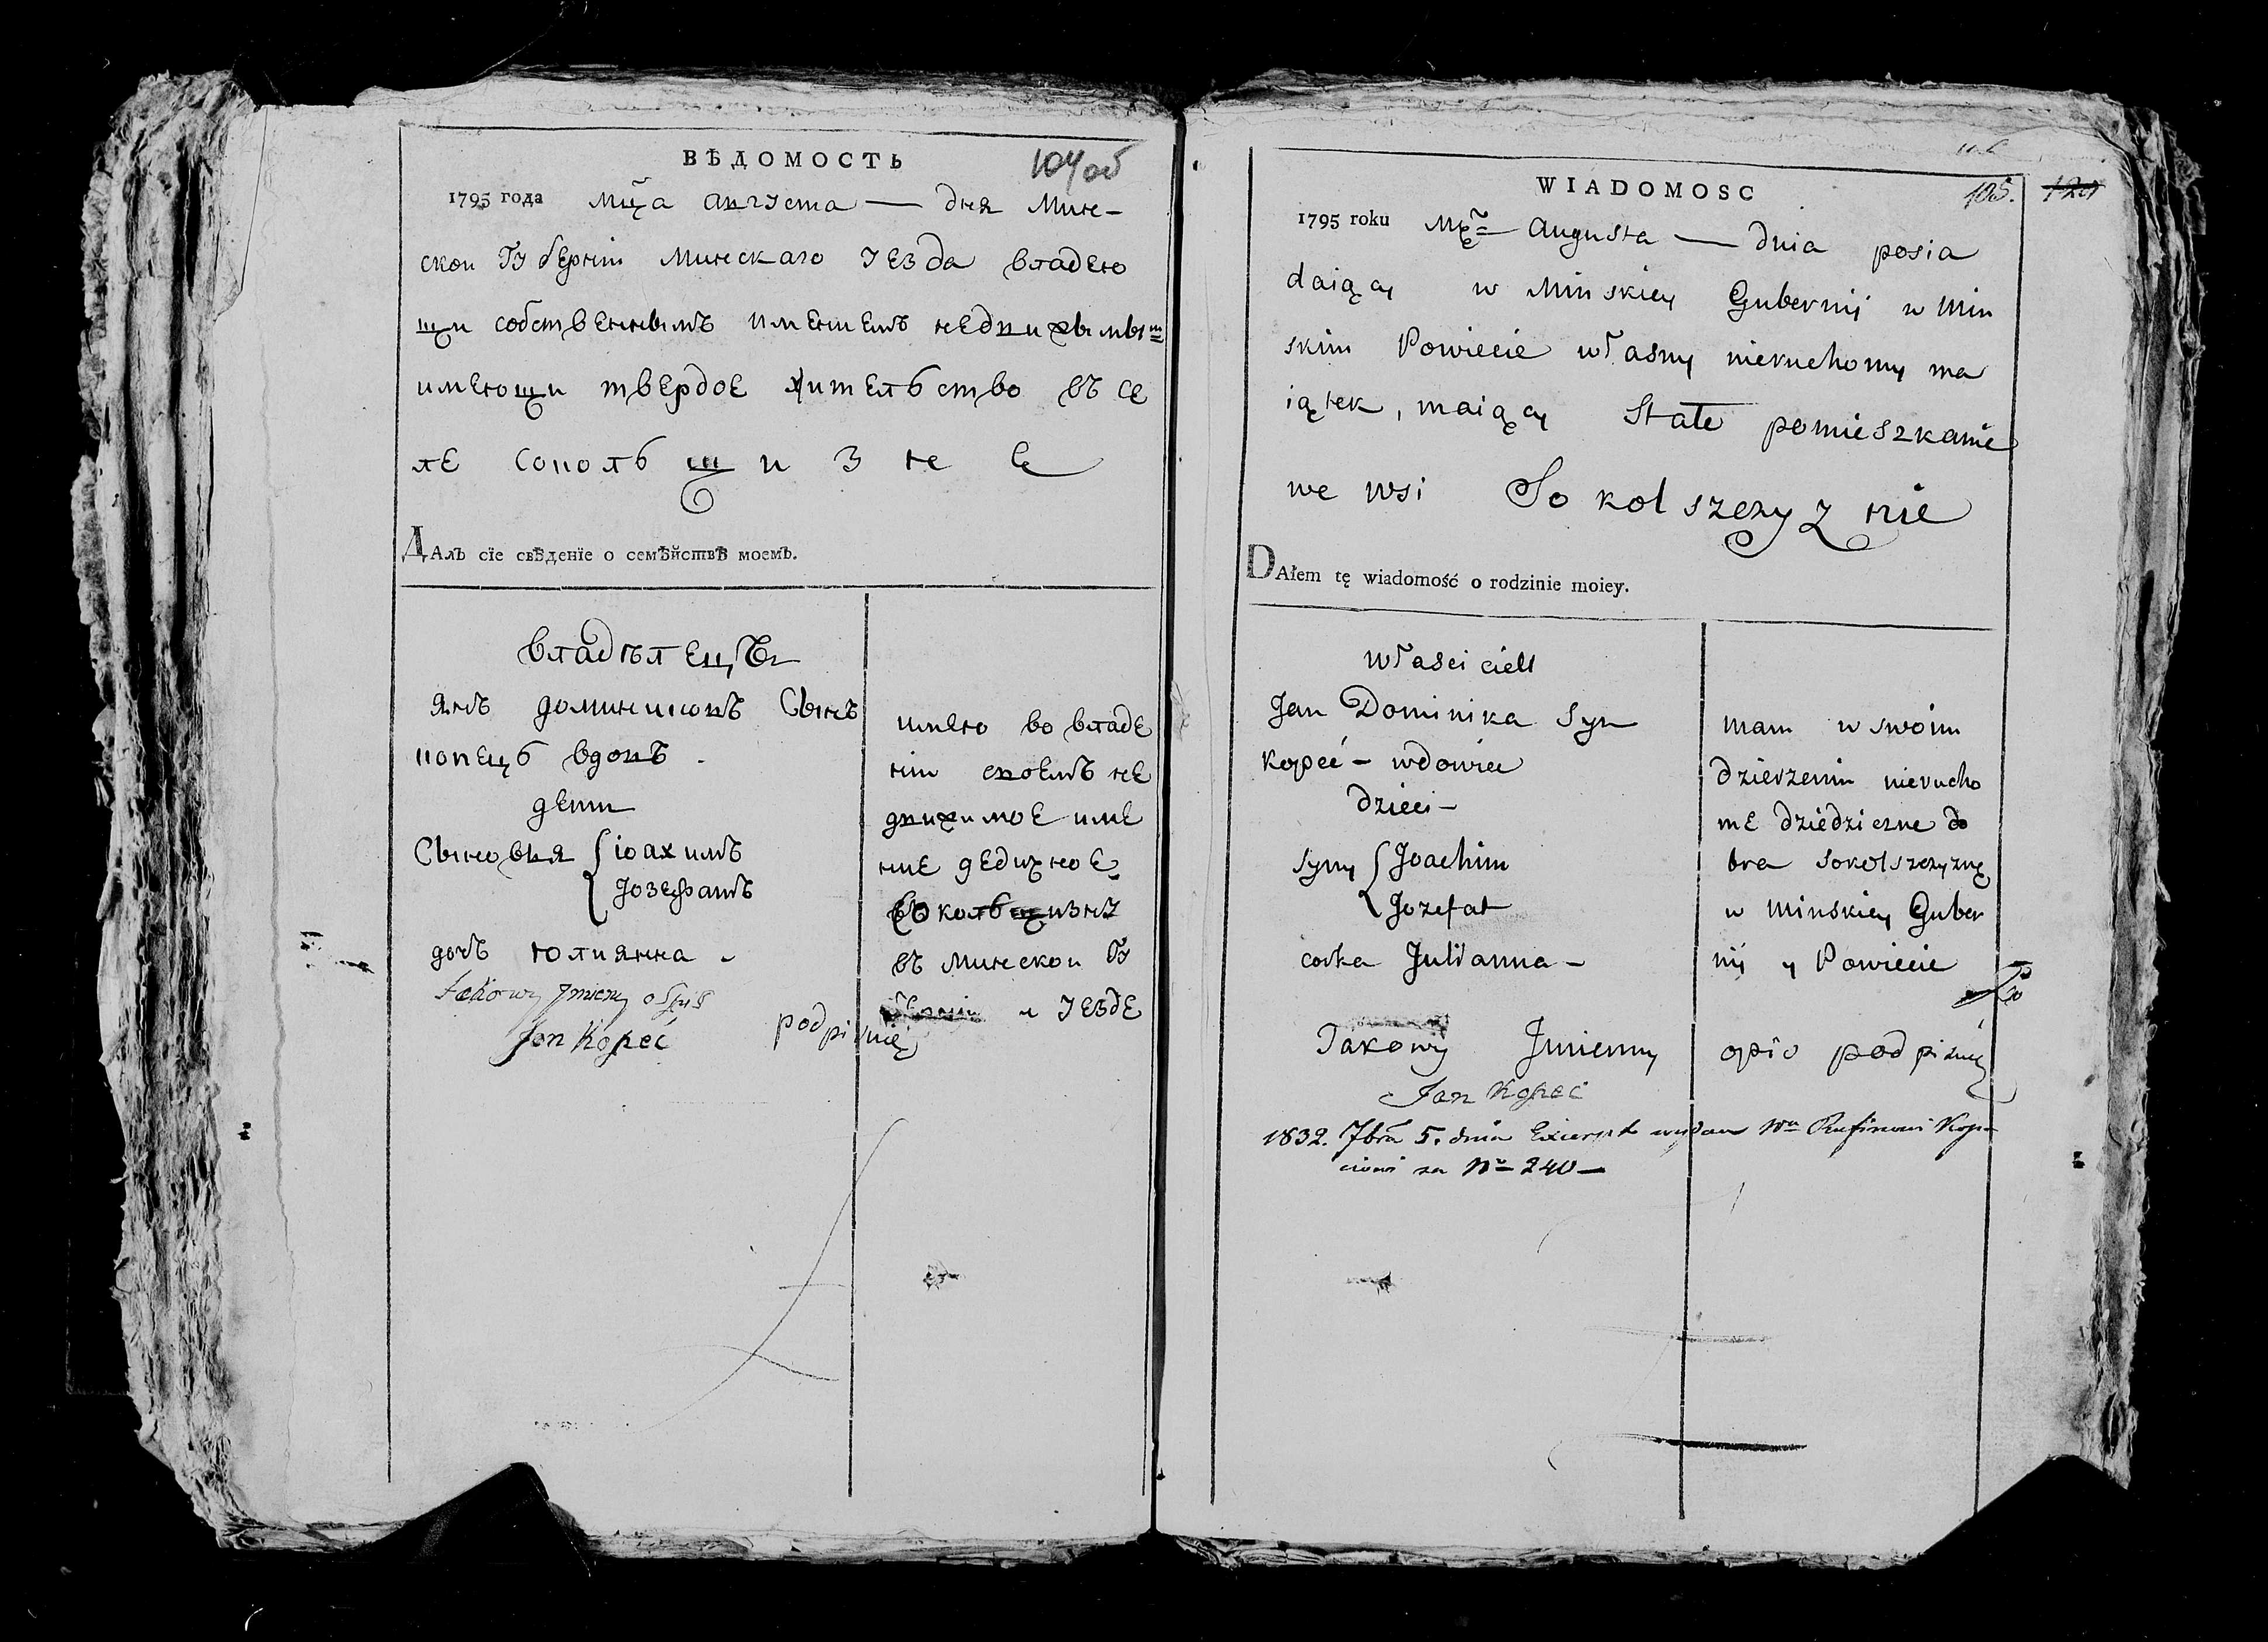 ВѢДОМОСТЬ
104об
1795 года мц̃а августа — дня Мин-
скои Губернїи Минскаго Уезда владею
щи собственнымъ имениемъ недвижымым
имеющи твердое жителство въ се
ле Соколь щ и з н е
ДАлъ сїе свѣденїе о семѣйствѣ моемъ.
владѣлецъ
янъ доминиковъ Сынъ
копець вдовъ .
дети
Сыновья { іоахимъ
{ Іозефатъ
дочъ юлиянна .
имею во владе
нїи своемъ не
движимое име
ние дедичное
Сокольщизне
въ Минскои Гу
и Уезде
Takowy Jmieny opis
Jan Kopeć podpisuię
WIADOMOSC
105.
1795 roku Mc̃a Augusta — dnia posia
daiący w Minskiey Gubernij w Min
skim Powiecie własny nieruchomy ma
iątek, maiący Stałe pomieszkanie
we wsi So kol szczy z nie
DAłem tę wiadomość o rodzinie moiey.
własciciel
Jan Dominika Syn
Kopeć - wdowiec
dzieci -
Syny { Joachim
{ Jozefat
corka Julianna -
mam w swoim
dzierzeniu nierucho
me dziedziczne do
bra Sokolszczyznę
w Minskiey Guber
nij y Powiecie
Takowy Jmienny opis podpisuię
Jan Kopeć
1832. 7bra 5. dnia Excerpt wydan Wu Rufinowi Kop-
ciowi za No 240 —